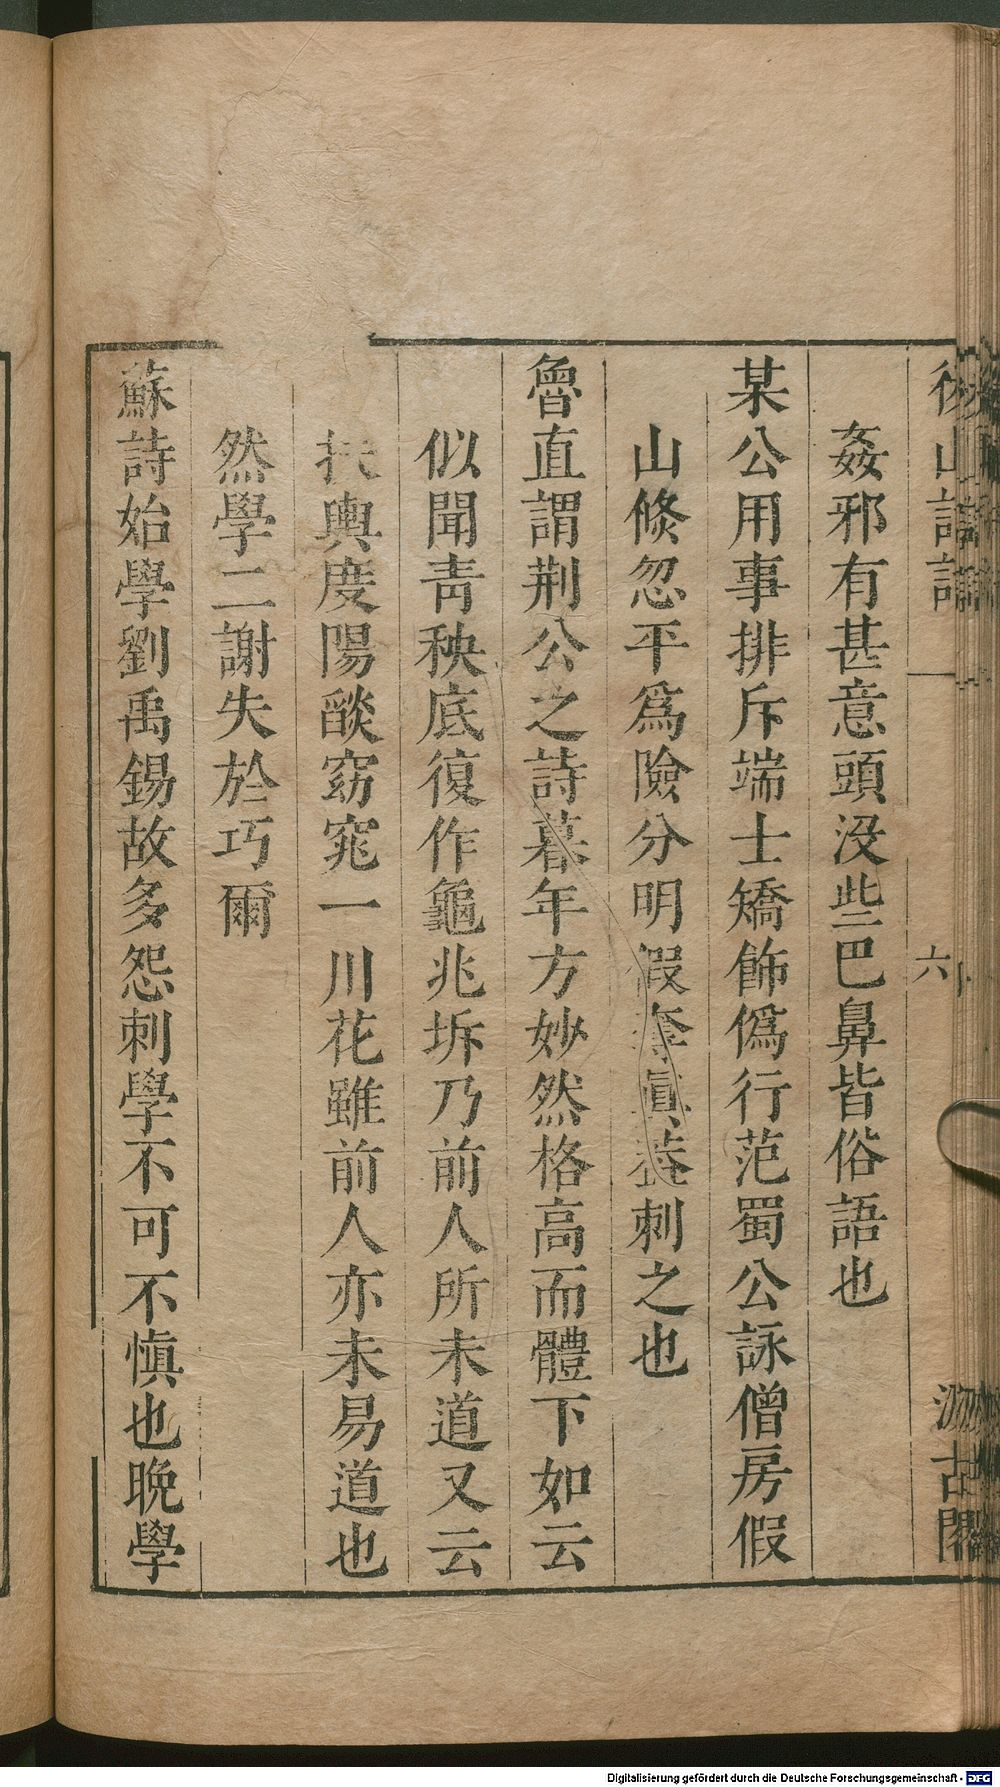 姦邪有甚意頭没些巴鼻皆俗語也
某公用事排斥端士矯飾僞行范蜀公詠僧房假
山倐忽平爲險分明假奪眞葢刺之也
魯直謂荆公之詩暮年方妙然格高而體下如云
似聞靑秧底復作龜兆坼乃前人所未道又云
扶輿度陽燄窈窕一川花雖前人亦未易道也
然學二謝失於巧爾
蘇詩始學劉禹錫故多怨刺學不可不愼也晩學
六
Digitalisierung gefördert durch die Deutsche Forschungsgemeinschaft - DFG